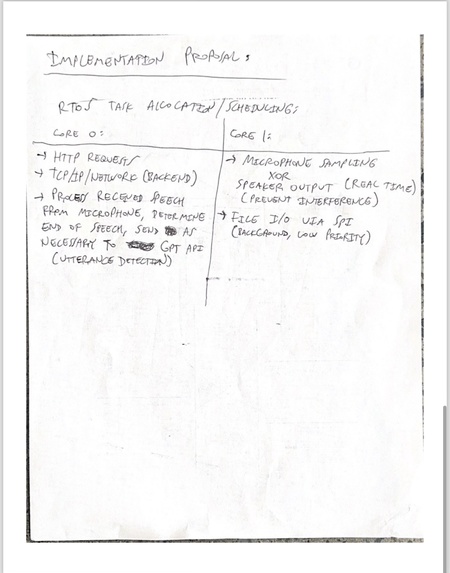 IMPLEMENTATION PROPOSAL:
RTOS TASK ALLOCATION/SCHEDULING:
CORE 0:
→ HTTP REQUESTS
→ TCP/IP/NETWORK (BACKEND)
→ PROCESS RECEIVED SPEECH
FROM MICROPHONE, DETERMINE
END OF SPEECH, SEND AS
NECESSARY TO GPT API
(UTTERANCE DETECTION)
CORE 1:
→ MICROPHONE SAMPLING
XOR
SPEAKER OUTPUT (REAL TIME)
(PREVENT INTERFERENCE)
→ FILE I/O VIA SPI
(BACKGROUND, LOW PRIORITY)